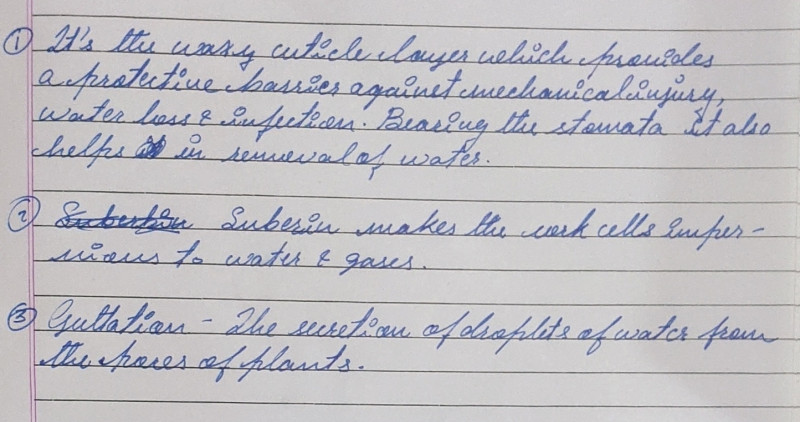 ① It's the waxy cuticle layer which provides
a protective barrier against mechanical injury,
water loss & infection. Bearing the stomata it also
helps in removal of water.
② Suberin makes the cork cells imper-
vious to water & gases.
③ Guttation - The secretion of droplets of water from
the pores of plants.